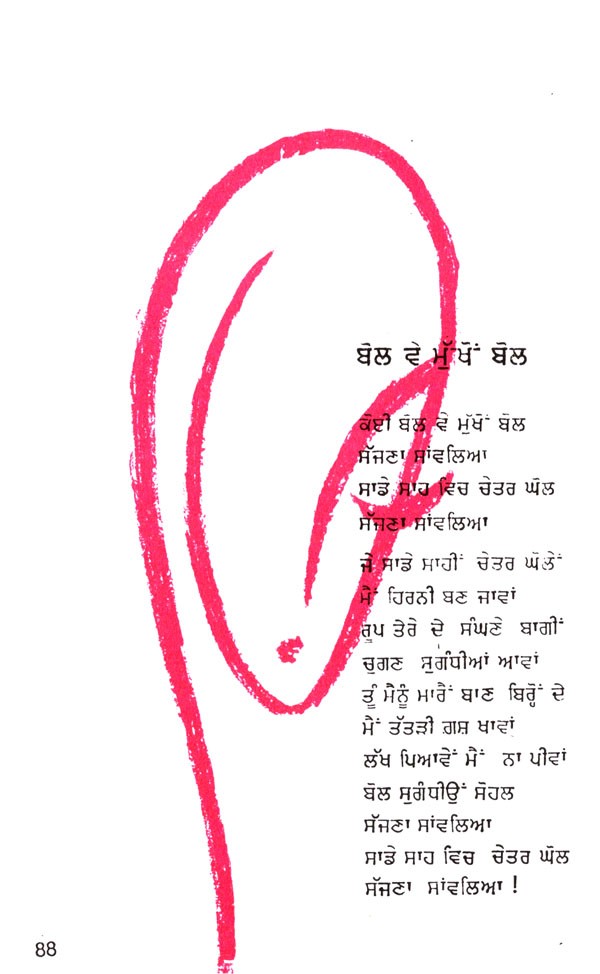 ਬੋਲ ਵੇ ਮੁੱਖੋਂ ਬੋਲ
ਕੋਈ ਬੋਲ ਵੇ ਮੁੱਖੋਂ ਬੋਲ
ਸੱਜਣਾ ਸਾਂਵਲਿਆ
ਸਾਡੇ ਸਾਹ ਵਿਚ ਚੇਤਰ ਘੋਲ
ਸੱਜਣਾ ਸਾਂਵਲਿਆ
ਜੇ ਸਾਡੇ ਸਾਹੀਂ ਚੇਤਰ ਘੋਲੇਂ
ਮੈਂ ਹਿਰਨੀ ਬਣ ਜਾਵਾਂ
ਰੂਪ ਤੇਰੇ ਦੇ ਸੰਘਣੇ ਬਾਗੀਂ
ਚੁਗਣ ਸੁਗੰਧੀਆਂ ਆਵਾਂ
ਤੂੰ ਮੈਨੂੰ ਮਾਰੈਂ ਬਾਣ ਬਿਰ੍ਹੋਂ ਦੇ
ਮੈਂ ਤੱਤੜੀ ਗ਼ਸ਼ ਖਾਵਾਂ
ਲੱਖ ਪਿਆਵੇਂ ਮੈਂ ਨਾ ਪੀਵਾਂ
ਬੋਲ ਸੁਗੰਧੀਉਂ ਸੋਹਲ
ਸੱਜਣਾ ਸਾਂਵਲਿਆ
ਸਾਡੇ ਸਾਹ ਵਿਚ ਚੇਤਰ ਘੋਲ
ਸੱਜਣਾ ਸਾਂਵਲਿਆ !
88